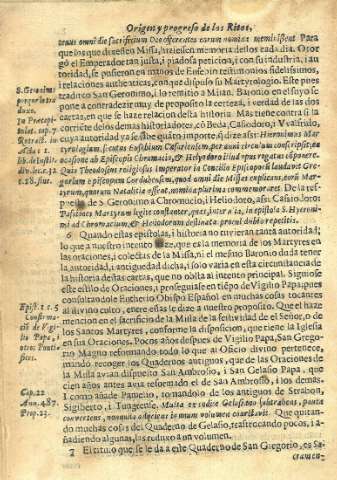 Origen y progreso de los Ritos.
tenus omni die sacrificium Deo offerentes eorum nomina meminissent Para
que los que dixessen Missa, hiziessen memoria de los cada dia. Otor
gò el Emperador tan justa, i piadosa peticion, i con su industria, i au
toridad, se pusieron en manos de Eusebio testimonios fidelissimos,
i relaciones authenticas, con que dispuso su Martyrologio. Este pues
traduxo San Geronimo, i lo remitio a Milan. Baronio en el suyo se
pone a contradezir muy de proposito la certeza, i verdad de las dos
cartas, en que se haze relacion desta historia. Mas tiene contra si la
corriente de los demas historiadores, cō Beda, Casiodoro, i Vvalfrido,
cuya autoridad ya se sabe quāto importe q̄ dize assi: Hieronimus Mar
tyrologium, secutus Eusebium Cæsariensem, per anni circulum conscripsit, ea
occasione ab Episcopis Chromacio, & Helyodoro illud opus rogatus cōponere.
Quia Theodosius religiosus Imperator in Concilio Episcoporū laudavit Gre-
gorium episcopum Cordubensem, quod omni die Missas explicans, eorū Mar-
tyrum, quorum Natalitia essent, nomina plurima commemoraret. De la res-
puesta de S. Geronimo a Chromacio, i Heliodoro, assi Casiodoro:
Passiones Martyrum legite constanter, quas, inter alia, in epistola S. Hyeroni-
mi ad Chromacium, & Heliodorum destinata procul dubio reperitis.
6 Quando estas epistolas, i historia no tuvieran tanta autoridad;
lo que a nuestro intento haze, que es la memoria de los Martyres en
las oraciones, i colectas de la Missa, ni el mesmo Baronio da da tener
la autoridad, i antiguedad dicha, i solo varia en esta circunstancia de
la historia destas cartas, que no obsta al intento principal. Siguiose
este estilo de Oraciones, i proseguiase en tiēpo de Vigilio Papa: pues
consultandole Eutherio Obispo Español en muchas cosas tocantes
al divino culto, entre estas le dize a nuestro proposito. Que el haze
mencion en el sacrificio de la Missa de la festividad de el Señor, o de
los Santos Martyres, conforme la disposicion, que tiene la Iglesia
en sus Oraciones. Pocos años despues de Vigilio Papa, San Grego-
rio Magno reformando todo lo que al Oficio divino pertenece,
mandò recoger los Quadernos antiguos, que de las Oraciones de
la Missa avian dispuesto San Ambrosio, i San Gelasio Papa, que
cien años antes avia reformado el de San Ambrosio, i los demas.
I como añade Pamelio, tomandolo de los antiguos de Strabon,
Sigiberto, i Tungrense, Multa ex codice Gelasiano subtrahens, pauca
convertens, nonnulla adijciens in unum volumen coarctavit. Que quitan-
do muchas cosas del Quaderno de Gelasio, trastrocando pocas, i a-
ñadiendo algunas, las reduxo a un volumen.
7 El titulo que se le da a este Quaderno de San Gregorio, es Sa-
cramen-
S. Geronimo
In Præcepi-
lib. de Instit.
div. lec. c. 32
Epist. 1. c. 5
Vigi-
lio Papa, i
otros Ponti-
fices.
Cap. 22
Ann. 487.
Prop. 23.